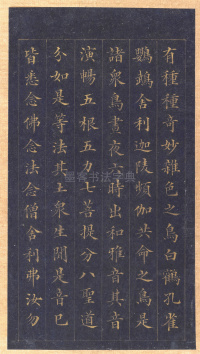 有種種奇妙雜色之鳥白鶴孔雀
鸚鵡舍利迦陵頻伽共命之鳥是
諸衆鳥晝夜六時出和雅音其音
演暢五根五力七菩提分八聖道
分如是等法其土衆生聞是音已
皆悉念佛念法念僧舍利弗汝勿